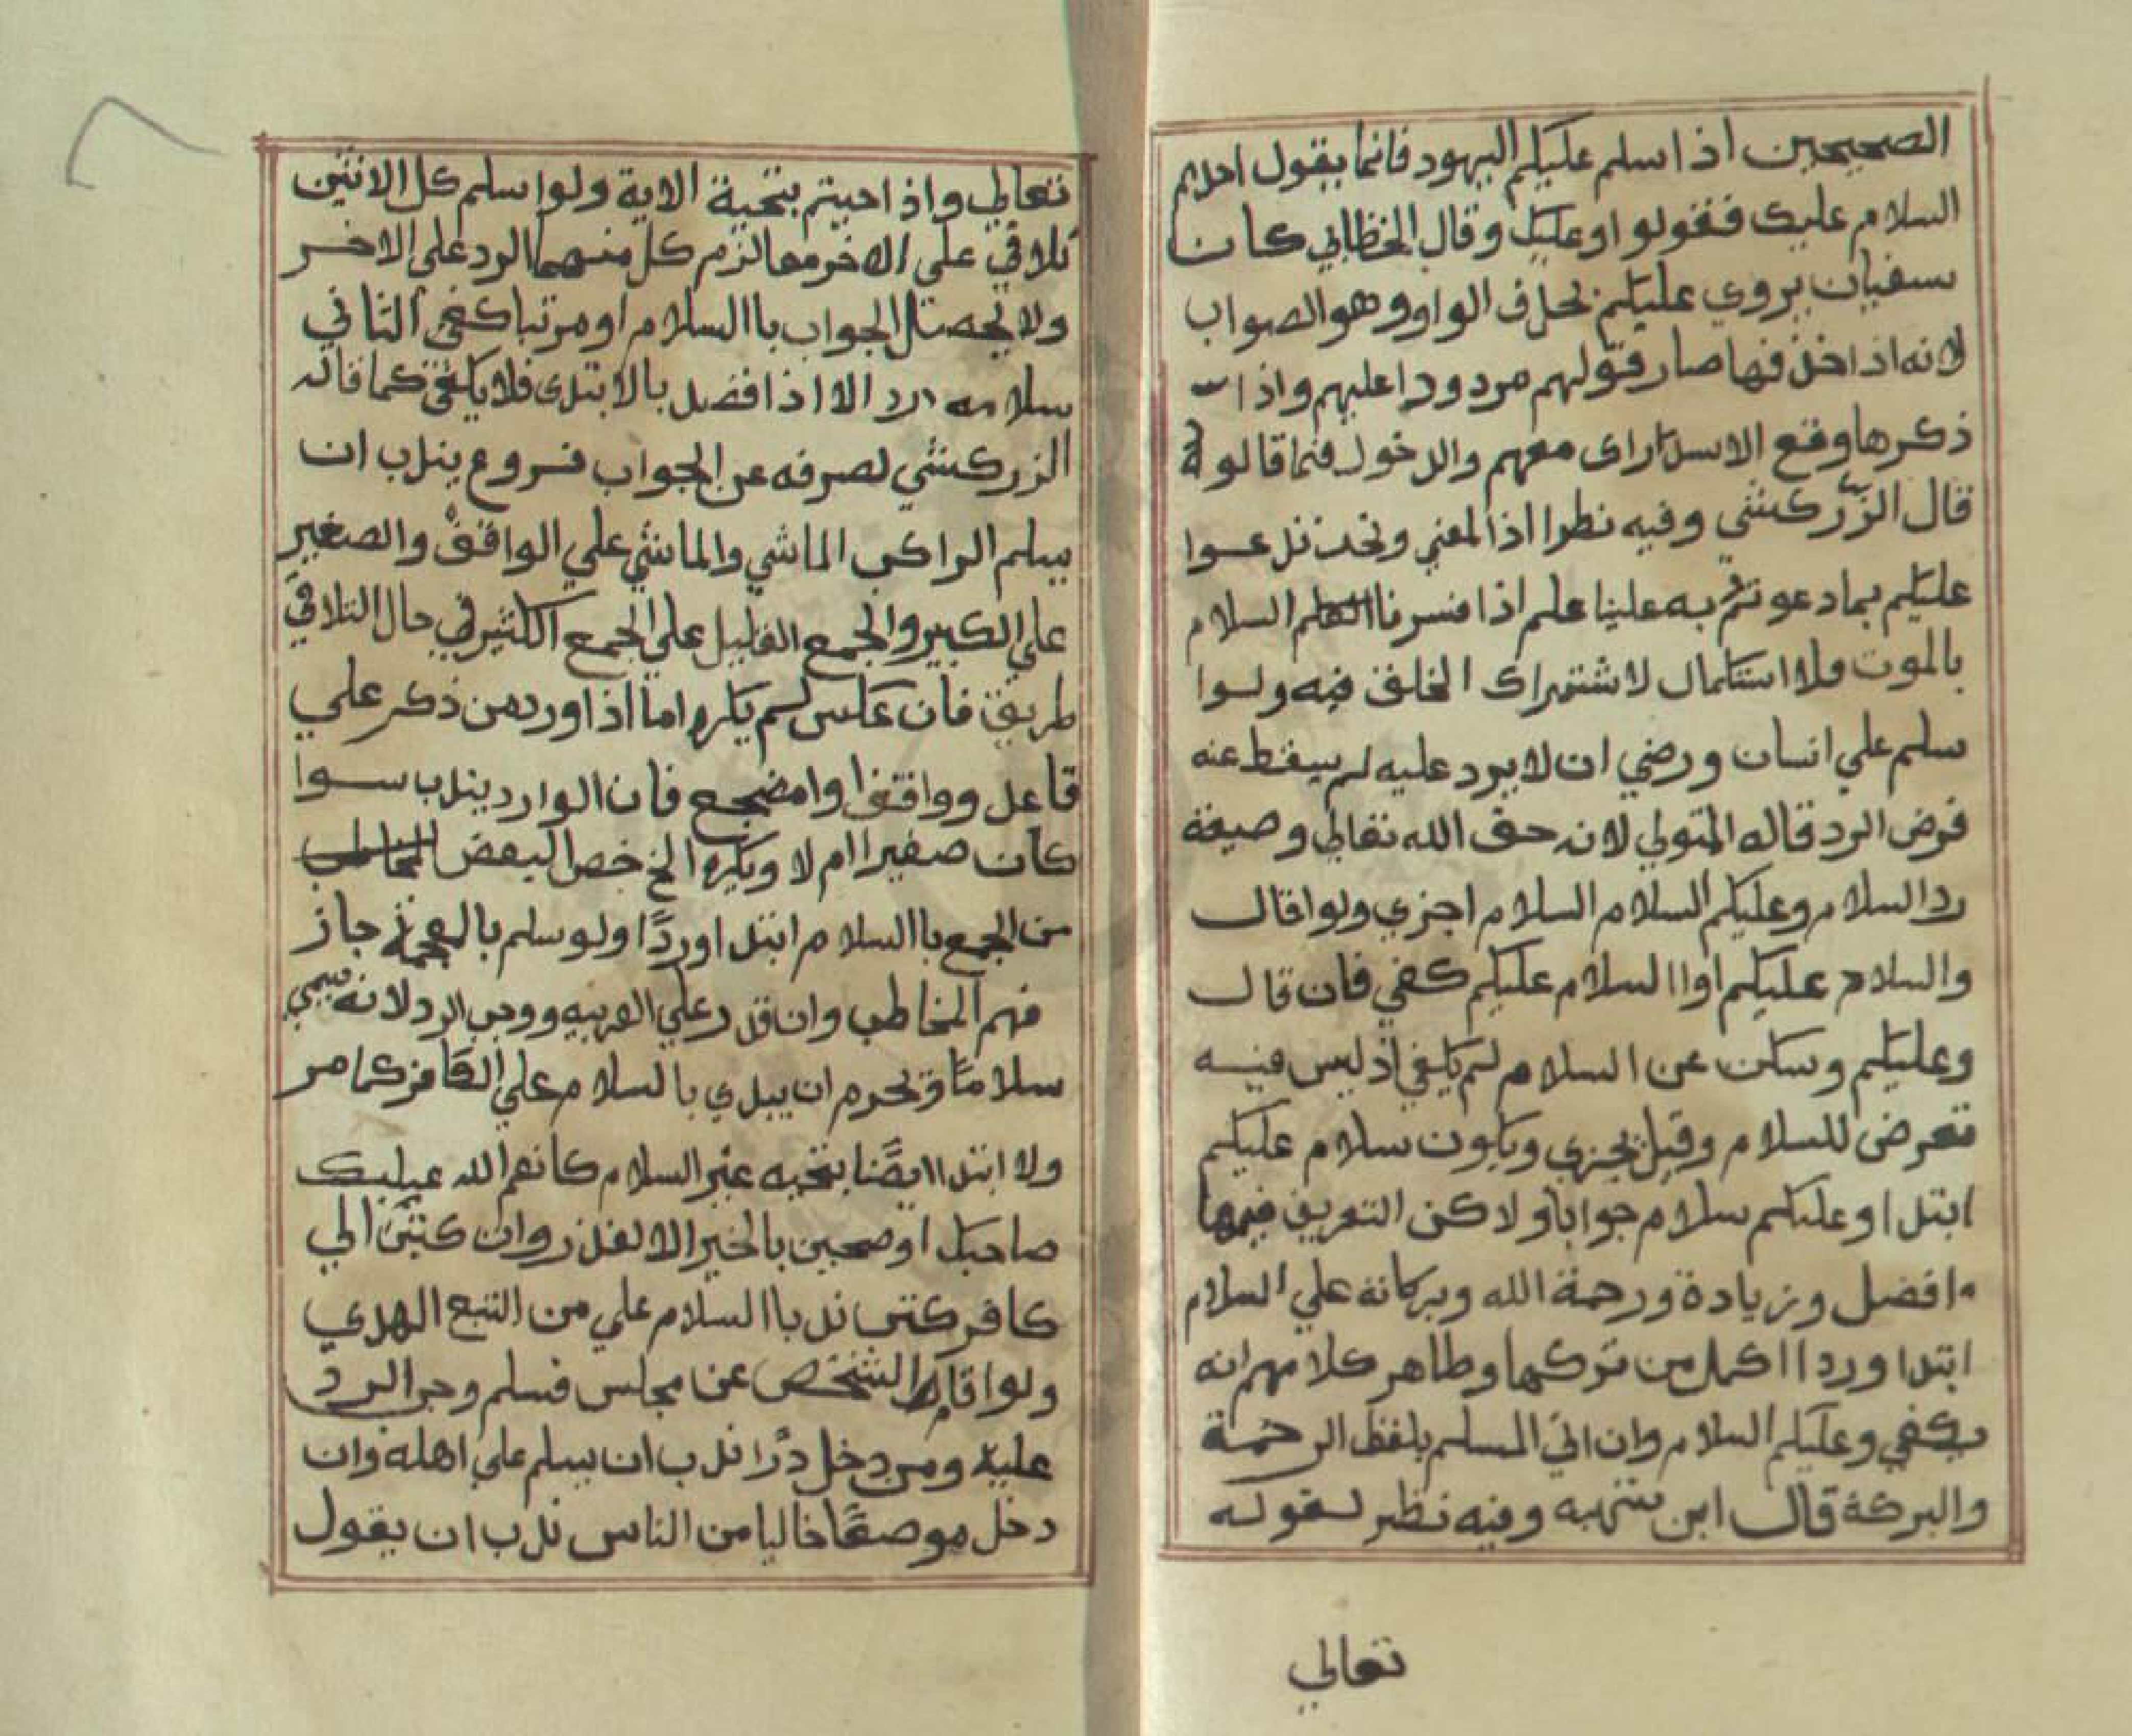 الصحيحين اذا سلم عليكم اليهود فانما يقول احدهم
السلام عليك فقولوا وعليك وقال الخطابي كان
سفيان يروي عليكم بحذف الواو وهو الصواب
لانه اذا حذفها صار قولهم مردودا عليهم واذا
ذكرها وقع الاستراك معهم والدخول فيما قالوه
قال الزركشي وفيه نظرا اذ المعني ونحن ندعوا
عليكم بما دعوتم به علينا علم اذا فسرنا السلام
بالموت فلا اشكال لاشتراك الخلق فيه ولوا
سلم علي انسان ورضي ان لا يرد عليه لم يسقط عنه
فرض الرد قاله المتولي لانه حق الله تعالي وصيغة
رد السلام وعليكم السلام السلام اجزي ولوا قال
والسلام عليكم اوا السلام عليكم كفي فان قال
وعليكم وسكت عن السلام لم يكفي اذ ليس فيه
تعرض للسلام وقيل يجزي ويكون سلام عليكم
ابتدا وعليكم سلام جوابا ولاكن التعريف فيهما
افضل وزيادة ورحمة الله وبركاته علي السلام
ابتدا وردا اكمل من تركها وظاهر كلامهم انه
يكفي وعليكم السلام وان اتي المسلم بلفظ الرحمة
والبركة قال ابن شهبه وفيه نظر لقوله
تعالي
تعالي واذا حييتم بتحية الاية ولوا سلم كل الاثنين
تلاقي علي الاخر معا لزم كل منهما الرد علي الاخر
ولا يحصل الجواب باالسلام او مرتبا كفي الثاني
سلامه رد الا اذا افضل بالابتدي فلا يكفي كما قاله
الزركشي لصرفه عن الجواب فروع يندب ان
يسلم الراكب الماشي والماشي علي الواقف والصغير
علي الكبير والجمع القليل علي الجمع الكثير في حال التلاقي
طريق فان عكس لم يكره اما اذا ورد من ذكر علي
قاعد وواقفا وامضجع فان الوارد يندب سوا
كان صغيرا ام لا ويكره الخ خص البعض
من الجمع باالسلام ابتدا وردًا ولو سلم بالعجمة جاز
فهم المخاطب وان قدر علي العربيه ووجب الرد لانه يسمي
سلامًا ويحرم ان يبدي بالسلام علي الكافر كما مر
ولا ابتدا ايضًا بتحيه غير السلام كانعم الله عليك
صاحبك او صحبين بالخير الا لعذر وان كتب الي
كافر كتب ندبا السلام علي من اتبع الهدي
ولوا قام الشخص عن مجلس فسلم وجب الرد
عليه ومن دخل دارًا ندب ان يسلم علي اهله وان
دخل موضعًا خاليا من الناس ندب ان يقول